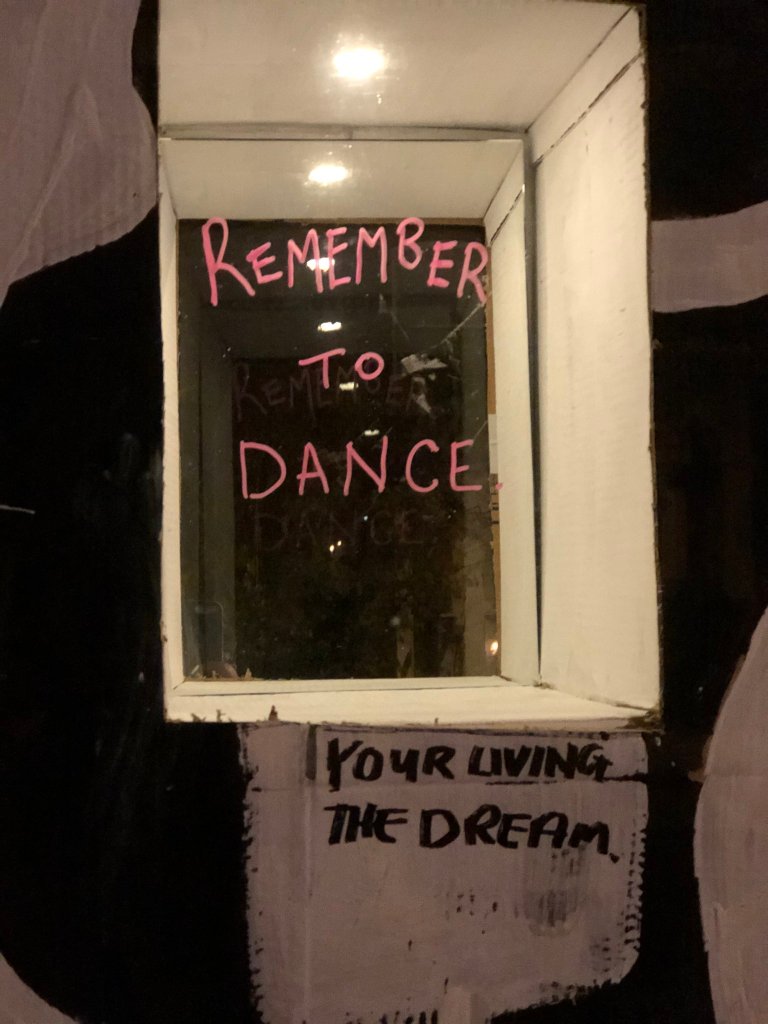 REMEMBER
TO
DANCE.
YOUR LIVING
THE DREAM.